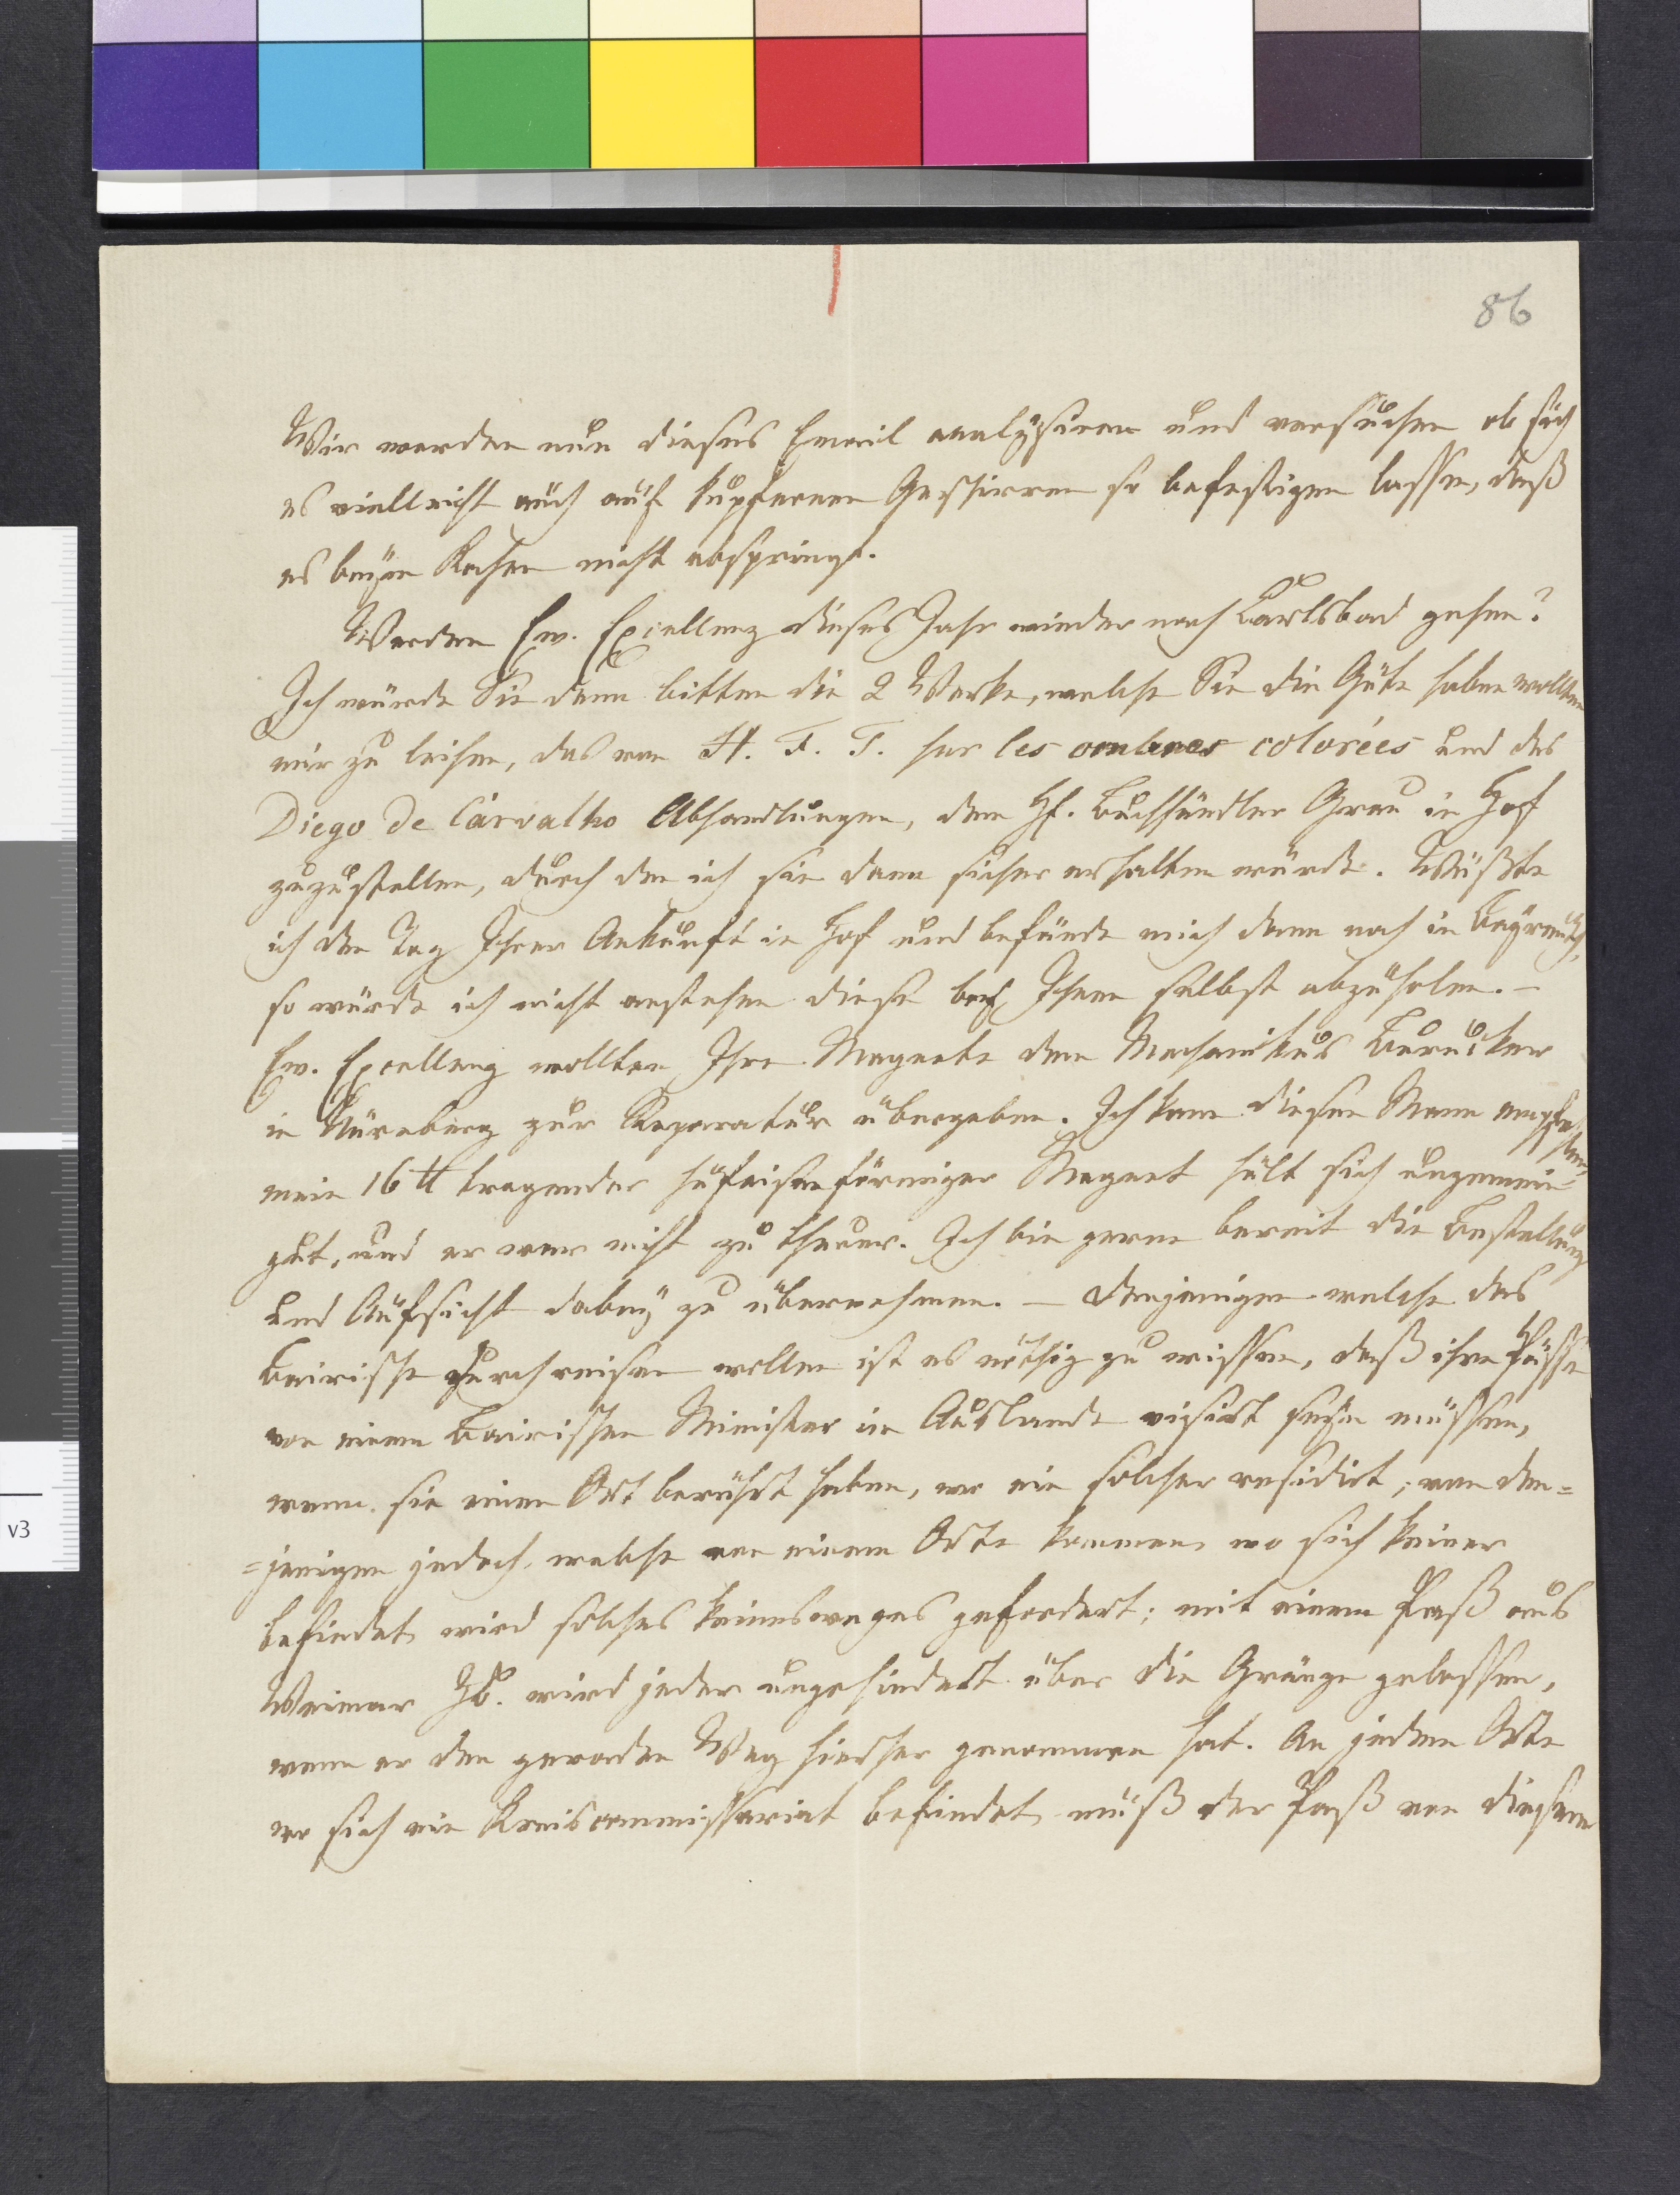 86
Wir werden nun dieses Email analysiren und versuchen ob sich
es vielleicht auch auf kupfernen Geschirren so befestigen lassen, daß
es beym Kochen nicht abspringt.
Werden Ew. Excellenz dieses Jahr wieder nach Carlsbad gehen?
Ich würde Sie dann bitten die 2 Werke, welche Sie die Güte haben wollten
mir zu leihen, das von H. F. T. sur les ombres colorées und des
Diego de Carvalho Abhandlungen, dem Hf. Buchhändler Grau in Hof
zuzustellen, durch den ich sie dann sicher erhalten würde. Wüßte
ich den Tag Ihrer Ankunft in Hof und befände mich dann noch in Bayreuth,
so würde ich nicht anstehen diese bey Ihnen selbst abzuholen. –
Ew. Excellenz wollten Ihre Magnete dem Mechanikus Burucker
in Nürnberg zur Reparatur übergeben. Ich kann diesen Mann empfehlen,
mein 16 ℔ tragender hufeisenförmiger Magnet hält sich ungemein
gut, und er war nicht zu theuer. Ich bin gerne bereit die Bestellung
und Aufsicht dabey zu übernehmen. – Denjenigen welche das
Bairische durchreisen wollen ist es nöthig zu wissen, daß ihre Pässe
von einem Bairischen Minister im Auslande visirt seyn müssen,
wenn sie einen Ort berührt haben, wo ein solcher residirt; von den=
=jenigen jedoch, welche von einem Orte kommen wo sich keiner
befindet wird solches keinesweges gefordert; mit einem Paß aus
Weimar ZB. wird jeder ungehindert über die Gränze gelassen,
wenn er den geraden Weg hierher genommen hat. An jedem Orte
wo sich ein Kreiscommissariat befindet muß der Paß von diesem
v3